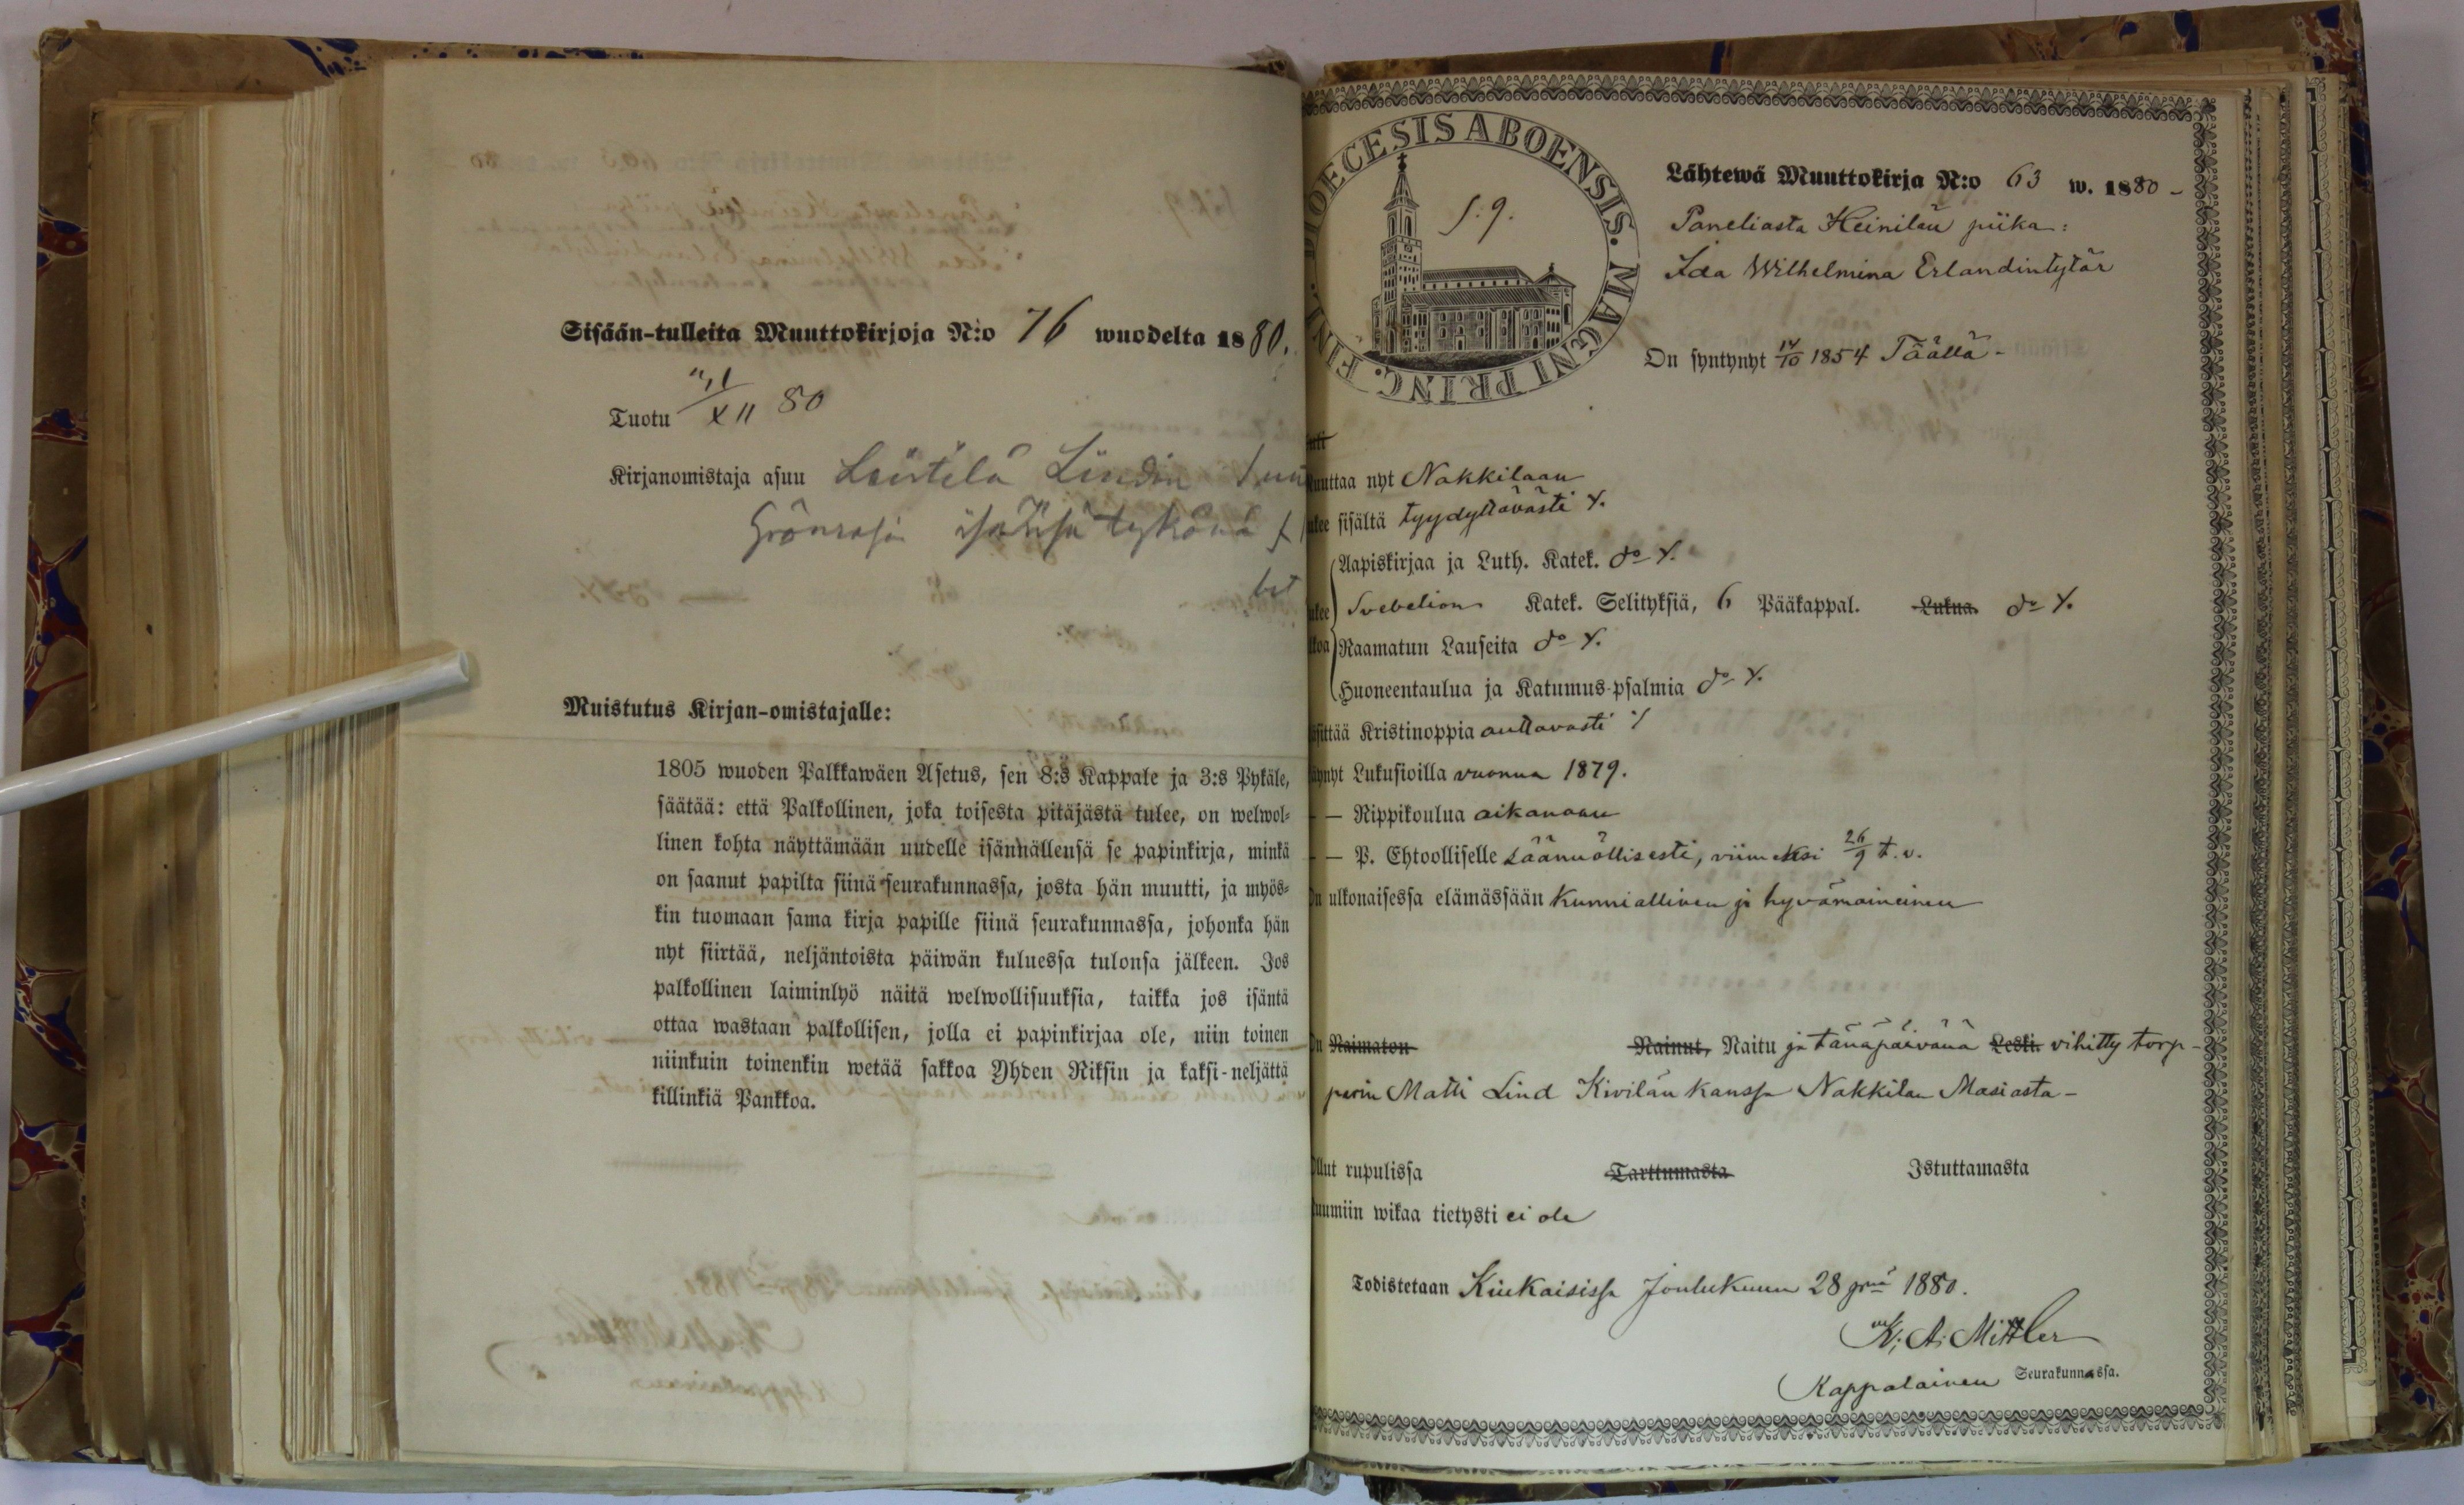 Sisään-tulleita Muuttokirjoja N:o 76 wuodelta 1880.
Tuotu XII 80
Kirjanomistaja asuu
tykönä
Muistutus Kirjan-omistajalle:
1805 wuoden Palkkawäen Asetus, sen 8:s Kappale ja 3:s Pykäle,
säätää: että Palkollinen, joka toisesta pitäjästä tulee, on welwol-
linen kohta näyttämään uudelle isännällensä se papinkirja, minkä
on saanut papilta siinä seurakunnassa, josta hän muutti, ja myös-
kin tuomaan sama kirja papille siinä seurakunnassa, johonka hän
nyt siirtää, neljäntoista päiwän kuluessa tulonsa jälkeen. Jos
palkollinen laiminlyö näitä welwollisuuksia, taikka jos isäntä
ottaa wastaan palkollisen, jolla ei papinkirjaa ole, niin toinen
niinkuin toinenkin wetää sakkoa Yhden Riksin ja kaksi-neljättä
killinkiä Pankkoa.
DIOECESIS ABOENSIS. MAGNI PRINC. FINL.
S. 9.
Lähtewä Muuttokirja N:o 63 w. 1880 -
Paneliasta Heinilän piika:
Ida Wilhelmina Erlandintytär
On syntynyt 14/10 1854 Täällä -
uuttaa nyt Nakkilaan
ulee sisältä tyydyttävästi
Aapiskirjaa ja Luth. Katek. do
Svebelion Katek. Selityksiä, 6 Pääkappal. Lukua. do
Raamatun Lauseita do
Huoneentaulua ja Katumus-psalmia do
sittää Kristinoppia auttavasti
ynyt Lukusioilla vuonna 1879.
— Rippikoulua aikanaan
— P. Ehtoolliselle säännöllisesti, viimeksi 26/9 t. v.
n ulkonaisessa elämässään kunniallinen ja hyvämaineinen
n Naimaton Nainut, Naitu ja tänäpäivänä Leski. vihitty torp-
parin Matti Lind Kivilän kanssa Nakkilan Masiasta -
llut rupulissa Tarttumasta Istuttamasta
uumiin wikaa tietysti ei ole
Todistetaan Kiukaisissa Joulukuun 28 pnä 1880.
K. A. Mittler
Kappalainen Seurakunnassa.